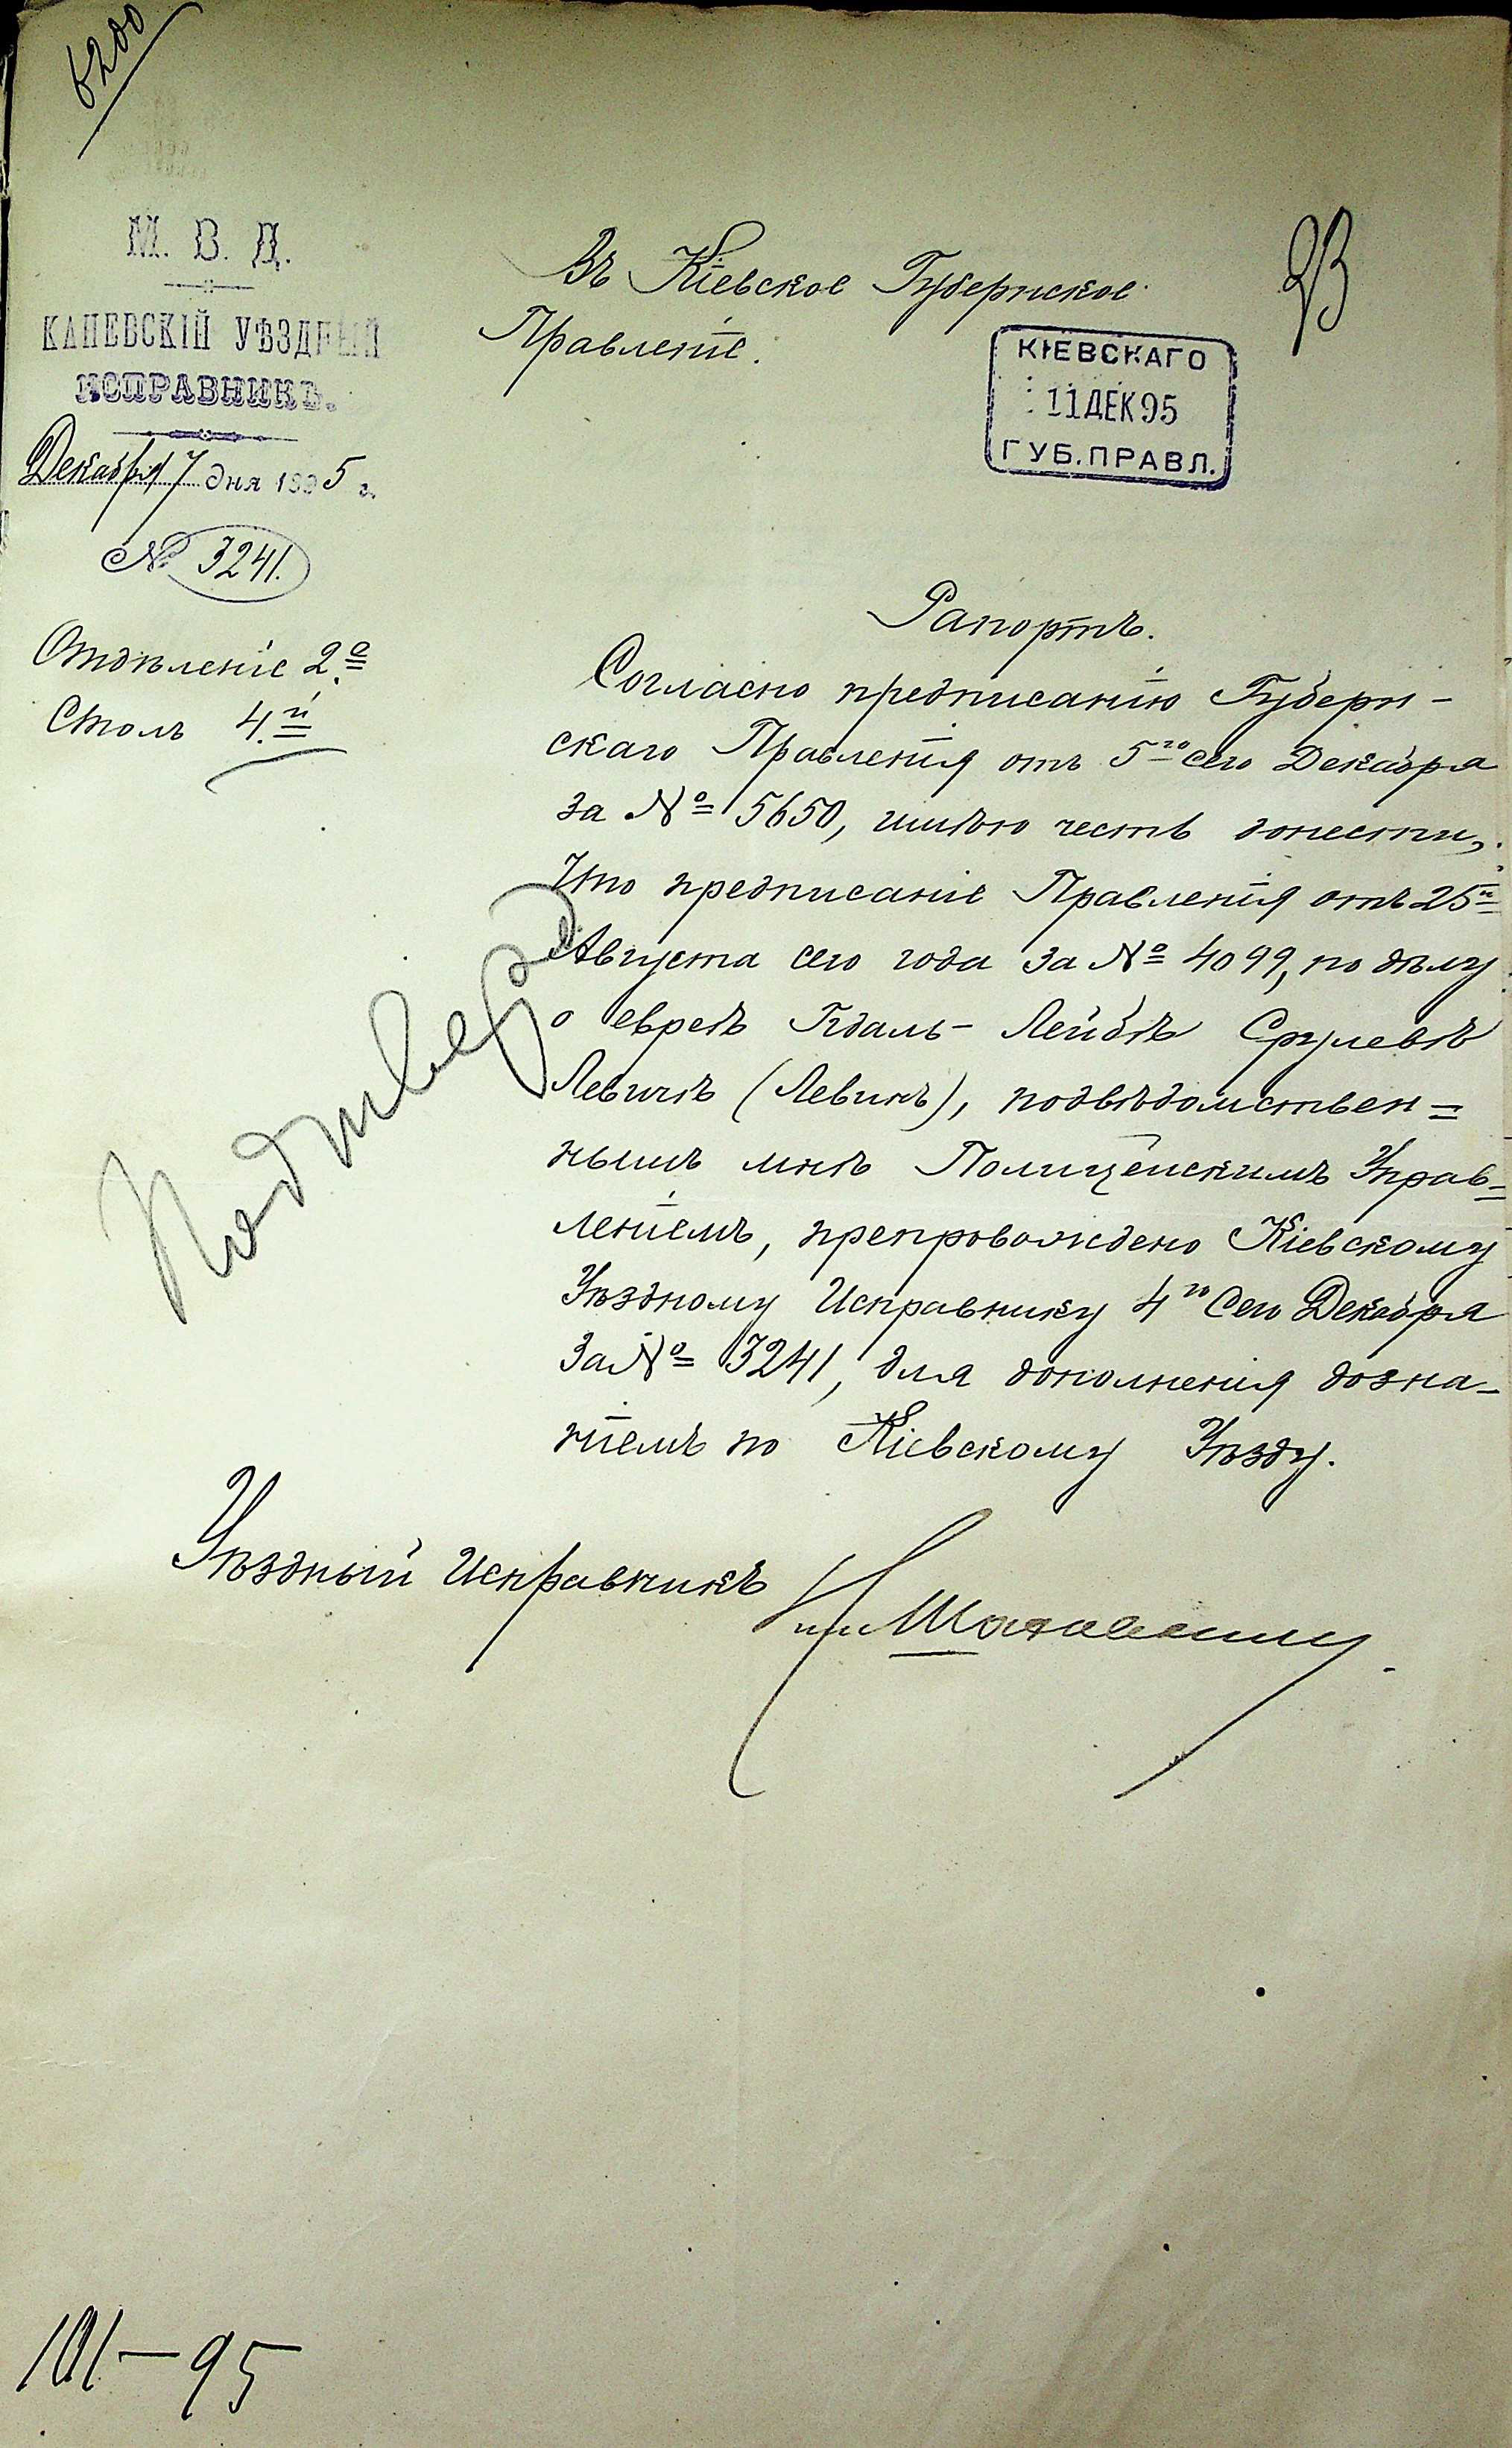 6200
М. В. Д.
КАНЕВСКІЙ УѢЗДНЫЙ
ИСПРАВНИКЪ.
Декабря 7 дня 1895 г.
№ 3241.
Отдѣленіе 2.е
Столъ 4.й
Въ Кіевское Губернское
Правленіе.
КІЕВСКАГО
11 ДЕК 95
ГУБ. ПРАВЛ.
Рапортъ.
Согласно предписанію Губерн-
скаго Правленія отъ 5го сего Декабря
за № 5650, имѣю честь донести,
что предписаніе Правленія отъ 25го
Августа сего года за № 4099, по дѣлу
о евреѣ Гдаль-Лейбѣ Срулевѣ
Левичѣ (Левинъ), подвѣдомствен=
нымъ мнѣ Полицейскимъ Управ=
леніемъ, препровождено Кіевскому
Уѣздному Исправнику 4го сего Декабря
за № 3241, для дополненія дозна-
ніемъ по Кіевскому Уѣзду.
Подтверд
Уѣздный Исправникъ
101-95